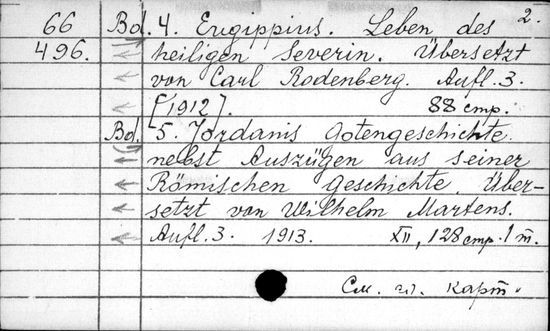 2.
66 Bd. 4. Eugippius. Leben des
496. heiligen Severin. Übersetzt
von Carl Rodenberg. Aufl. 3.
[1912]. 88 стр.
Bd. 5. Jordanis Gotengeschichte
nebst Auszügen aus seiner
Römischen Geschichte. Über-
setzt von Wilhelm Martens.
Aufl. 3. 1913. XII, 128 стр. 1 т.
См. сл. карт.